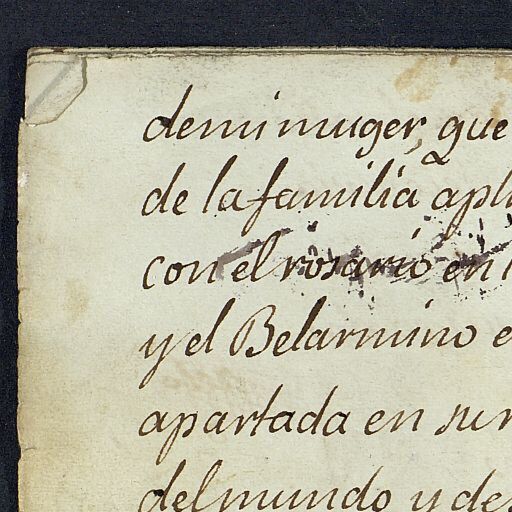 de mi muger, que
de la familia apl
con el rosario en
y el Belarmino e
apartada en su r
del mundo y de